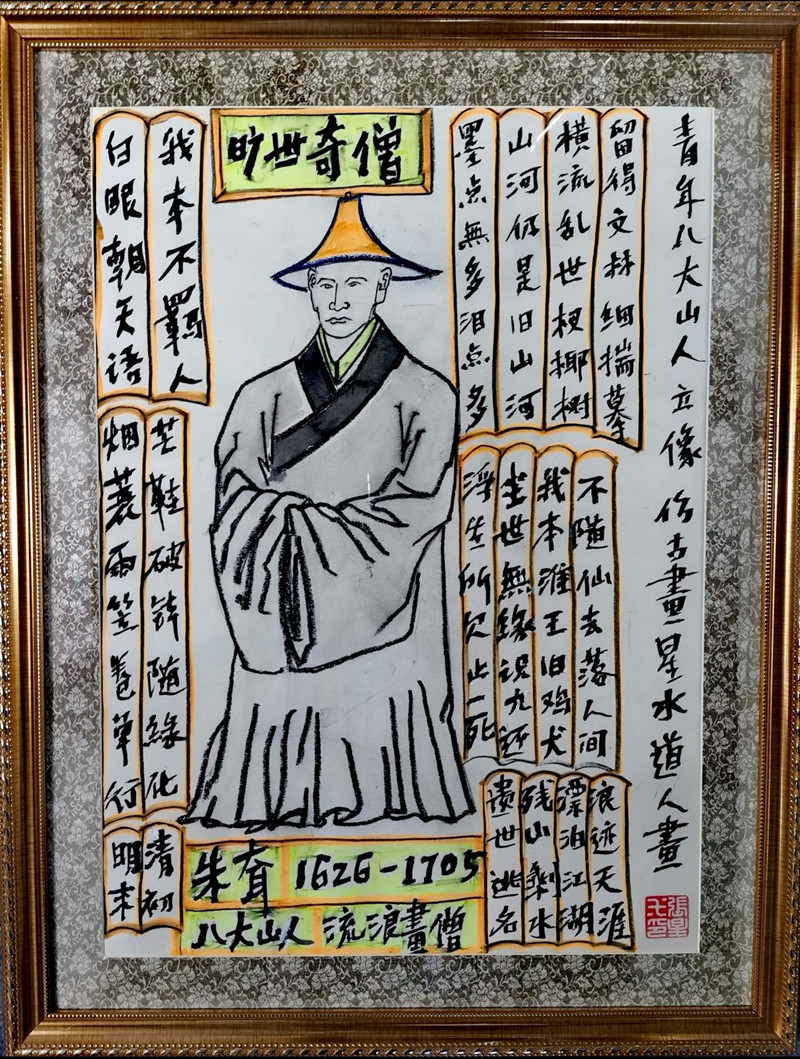 旷世奇僧
白眼朝天语
我本不羁人
烟蓑雨笠卷单行
芒鞋破钵随緣化
明末
清初
墨点無多泪点多
山河仍是旧山河
横流乱世杈椰树
留得文林细揣摹
浮生所欠止一死
尘世無緣识九还
我本淮王旧鸡犬
不随仙去落人间
遗世逃名
残山剩水
漂泊江湖
浪迹天涯
朱耷 1626-1705
八大山人 流浪畫僧
青年八大山人立像仿古畫星水道人畫